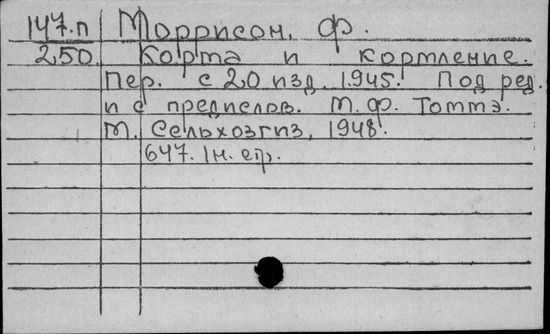 147.п Моррисон, Ф.
250 Корма и кормление.
Пер. с 20 изд. 1945. Под ред.
и с предислов. М.Ф. Томмэ.
М. Сельхозгиз, 1948.
647. 1н. стр.